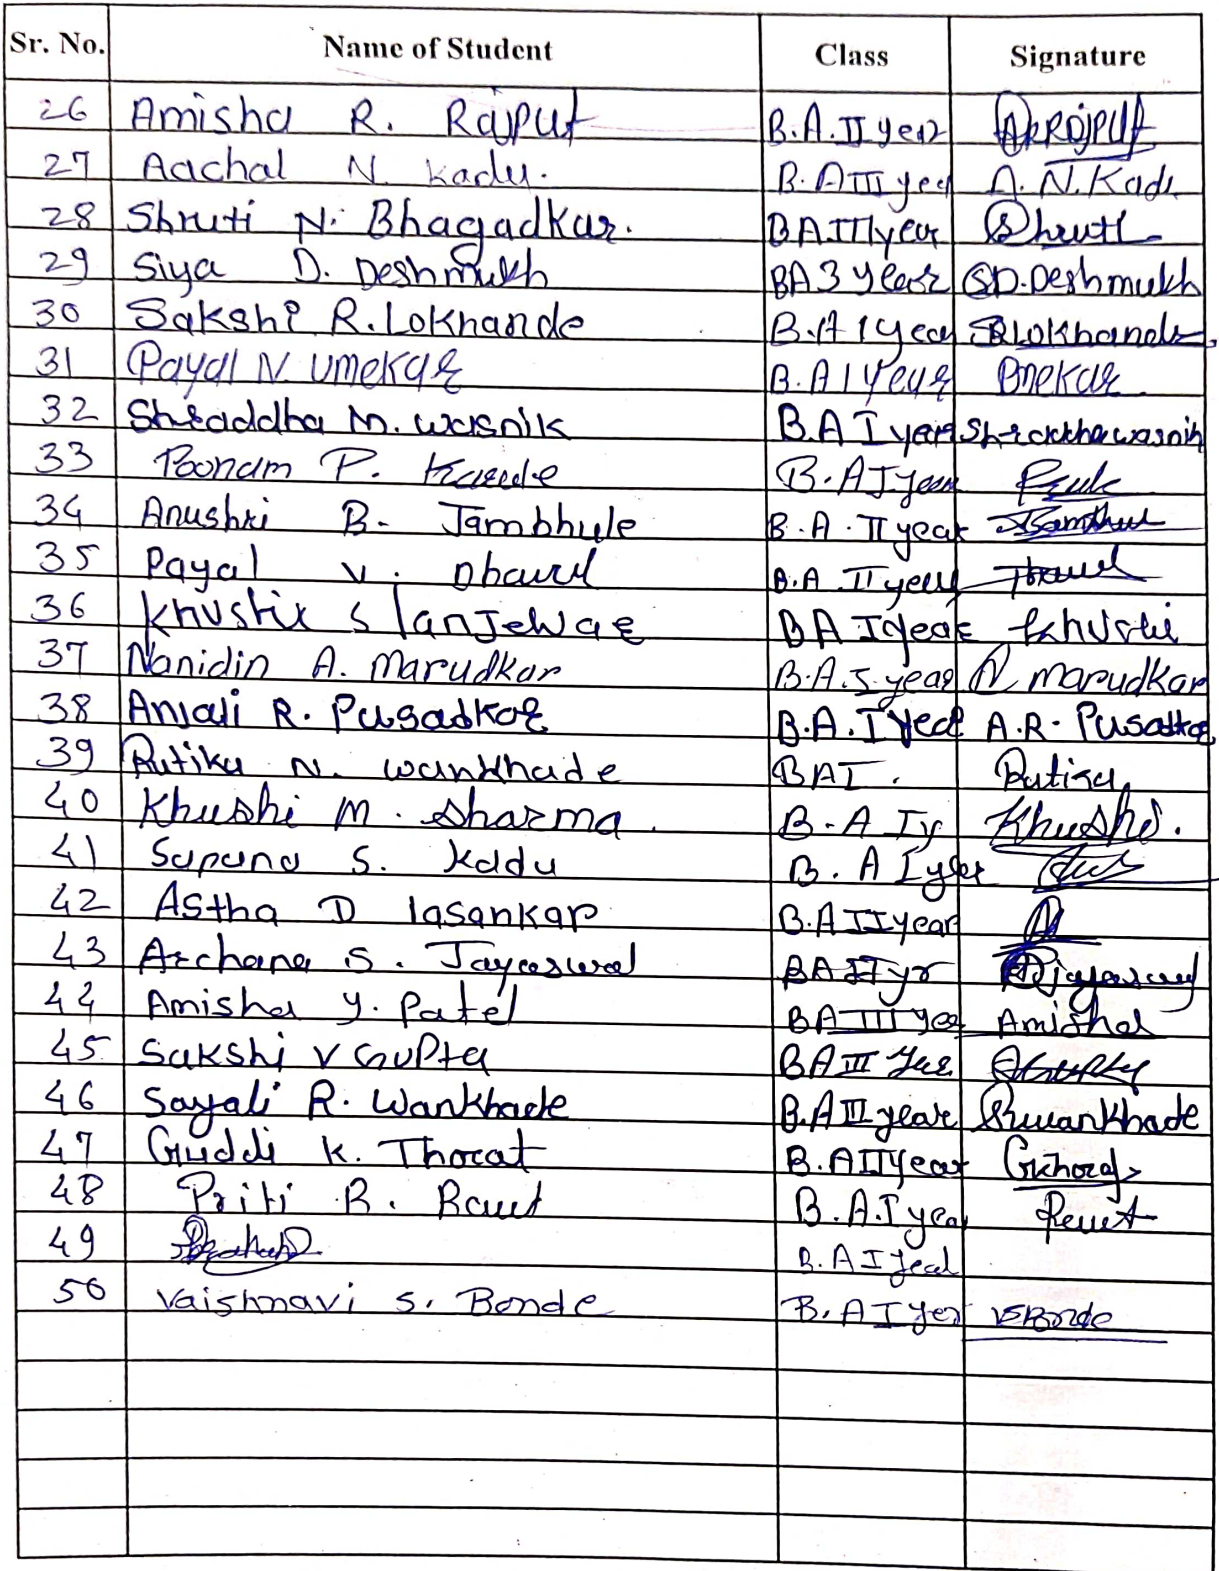 Sr. No. Name of Student Class Signature
26 Amisha R. Rajput B.A. II year ARRajput
27 Aachal N. Kadu. B. A III yea A. N. Kadu
28 Shruti N. Bhagadkar. BA III year Shruti
29 Siya D. Deshmukh BA 3 year SD. Deshmukh
30 Sakshi R. Lokhande B.A 1 year RLokhande
31 Payal N. Umekar B.A 1 Year Pmekar
32 Shraddha M. Wasnik B.A I year
33 Poonam P. B.A I year
34 Anushri B. Jambhule B.A. II year
35 Payal V. Dhawl B.A. II year
36 Khushi S Tanjewar BA I year Khushi
37 Nanidin A. Marudkar B.A. I year N marudkar
38 Anjali R. Pusadkar B.A. I Year A.R. Pusadkar
39 Rutika N. Wankhade BA I. Rutika
40 Khushi M. Sharma. B-A Iy Khushi.
41 Sapana S. Kadu B. A I year
42 Astha D lasankar B.A II year
43 Archana S. Jayaswal BA II yr
44 Amisha Y. Patel BA III yea Amisha
45 Sakshi V Gupta BA III Year SGupta
46 Sayali R. Wankhade B.A III year SRwankhade
47 Guddi K. Thorat B.A II Year
48 Priti R. Raut B.A. I year PRaut
49 B.A I year
50 Vaishnavi S. Bonde B.A I Year VSBonde